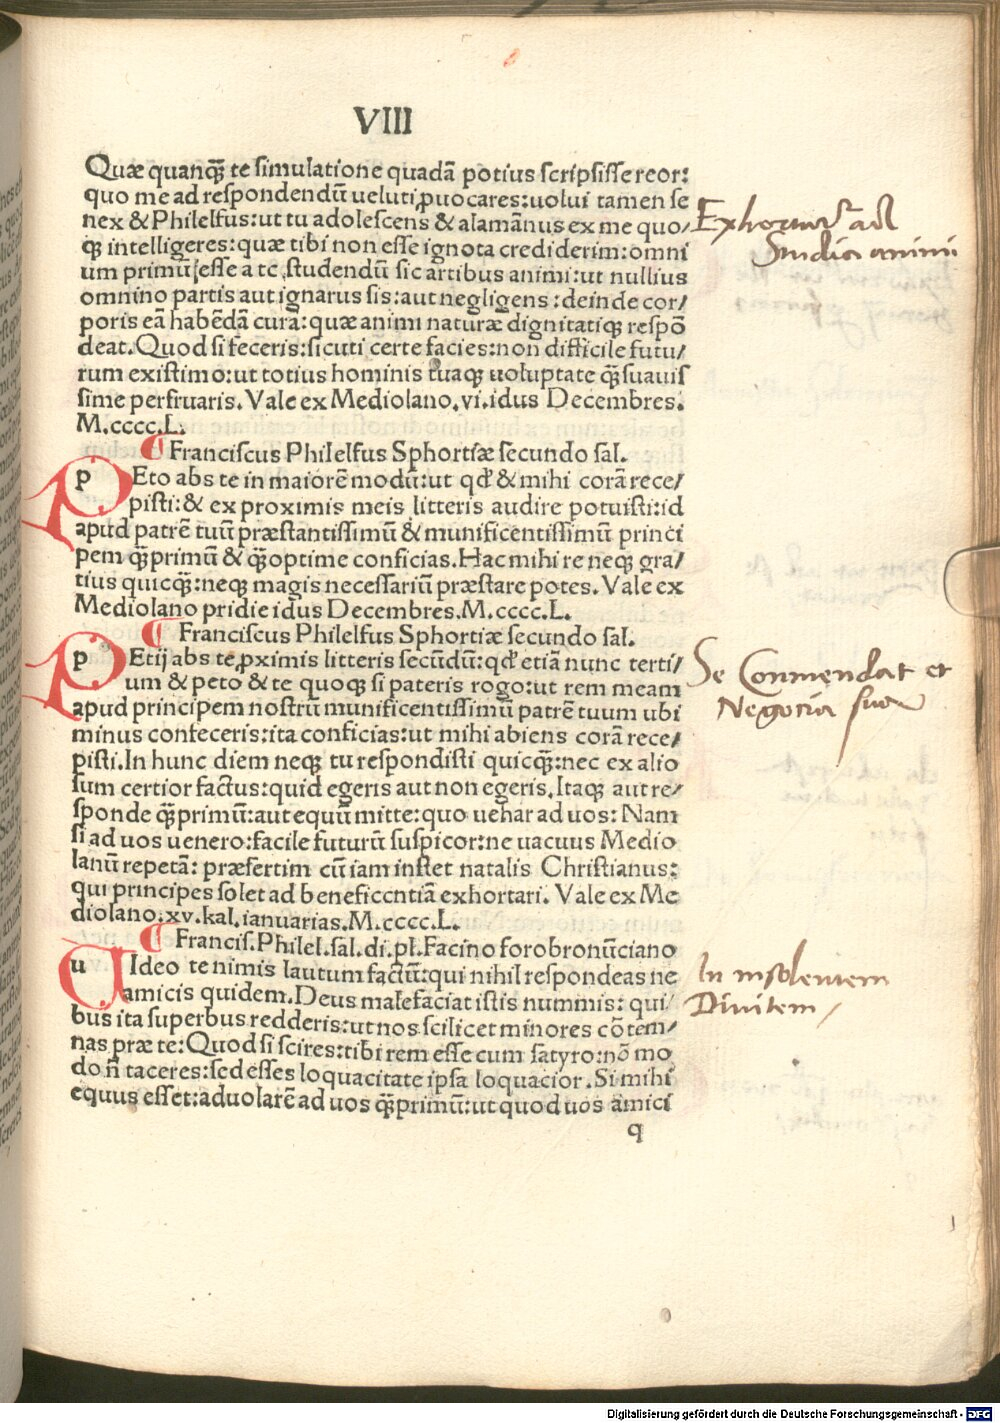 VIII
Quæ quanq̃ te simulatione quadã potius scripsisse reor:
quo me ad respondendũ ueluti ꝓuocares: uolui tamen se
nex & Philelfus: ut tu adolescens & alamãnus ex me quo/
qꝫ intelligeres: quæ tibi non esse ignota crediderim: omni
um primũ esse a te studendũ sic artibus animi: ut nullius
omnino partis aut ignarus sis: aut negligens: deinde cor/
poris eã habẽdã curã: quæ animi naturæ dignitatiqꝫ respõ
deat. Quod si feceris: sicuti certe facies: non difficile futu/
rum existimo: ut totius hominis tuaqꝫ uoluptate q̃ suauis
sime perfruaris. Vale ex Mediolano. vi. idus Decembres.
M.cccc.L.
¶ Franciscus Philelfus Sphortiæ secundo sal.
PEto abs te in maiorẽ modũ: ut qđ & mihi corã rece/
pisti: & ex proximis meis litteris audire potuisti: id
apud patrẽ tuũ præstantissimũ & munificentissimũ princi
pem q̃primũ & q̃optime conficias. Hac mihi re neqꝫ gra/
tius quicq̃: neqꝫ magis necessariũ præstare potes. Vale ex
Mediolano pridie idus Decembres. M.cccc.L.
¶ Franciscus Philelfus Sphortiæ secundo sal.
PEtij abs te ꝓximis litteris secũdũ: qđ etiã nunc terti/
um & peto & te quoqꝫ si pateris rogo: ut rem meam
apud principem nostrũ munificentissimũ patrẽ tuum ubi
minus confeceris: ita conficias: ut mihi abiens corã rece/
pisti. In hunc diem neqꝫ tu respondisti quicq̃: nec ex alio
sum certior factus: quid egeris aut non egeris. Itaqꝫ aut re/
sponde q̃primũ: aut equũ mitte: quo uehar ad uos: Nam
si ad uos uenero: facile futurũ suspicor: ne uacuus Medio
lanũ repetã: præsertim cũ iam instet natalis Christianus:
qui principes solet ad beneficentiã exhortari. Vale ex Me
diolano. xv. kal. ianuarias. M.cccc.L.
¶ Francis. Philel. sal. di. pl. Facino forobronũciano
uIdeo te nimis lautum factũ: qui nihil respondeas ne
amicis quidem. Deus malefaciat istis nummis: qui/
bus ita superbus redderis: ut nos scilicet minores cõtem/
nas præ te: Quod si scires: tibi rem esse cum satyro: nõ mo
do ñ taceres: sed esses loquacitate ipsa loquacior. Si mihi
equus esset: aduolarẽ ad uos q̃primũ: ut quod uos amici
q
Exhortatur ad
Studia animi
Se Commendat et
Negocia sua
In insolentem
Diuitem
Digitalisierung gefördert durch die Deutsche Forschungsgemeinschaft - DFG